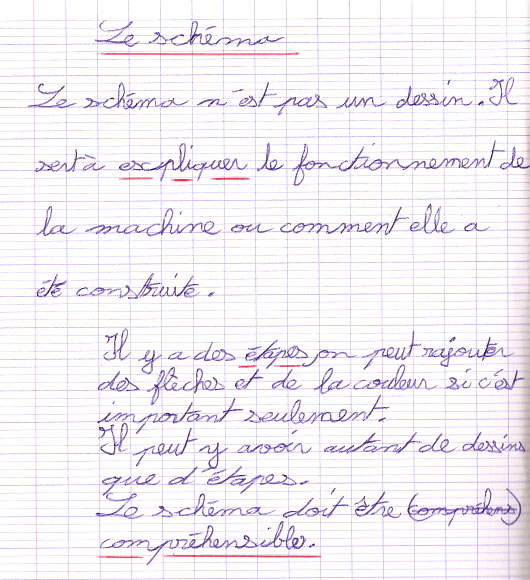 Le schéma
Le schéma n'est pas un dessin. Il
sert à expliquer le fonctionnement de
la machine ou comment elle a
été construite.
Il y a des étapes, on peut rajouter
des flèches et de la couleur si c'est
important seulement.
Il peut y avoir autant de dessins
que d'étapes.
Le schéma doit être (compréhens)
compréhensible.